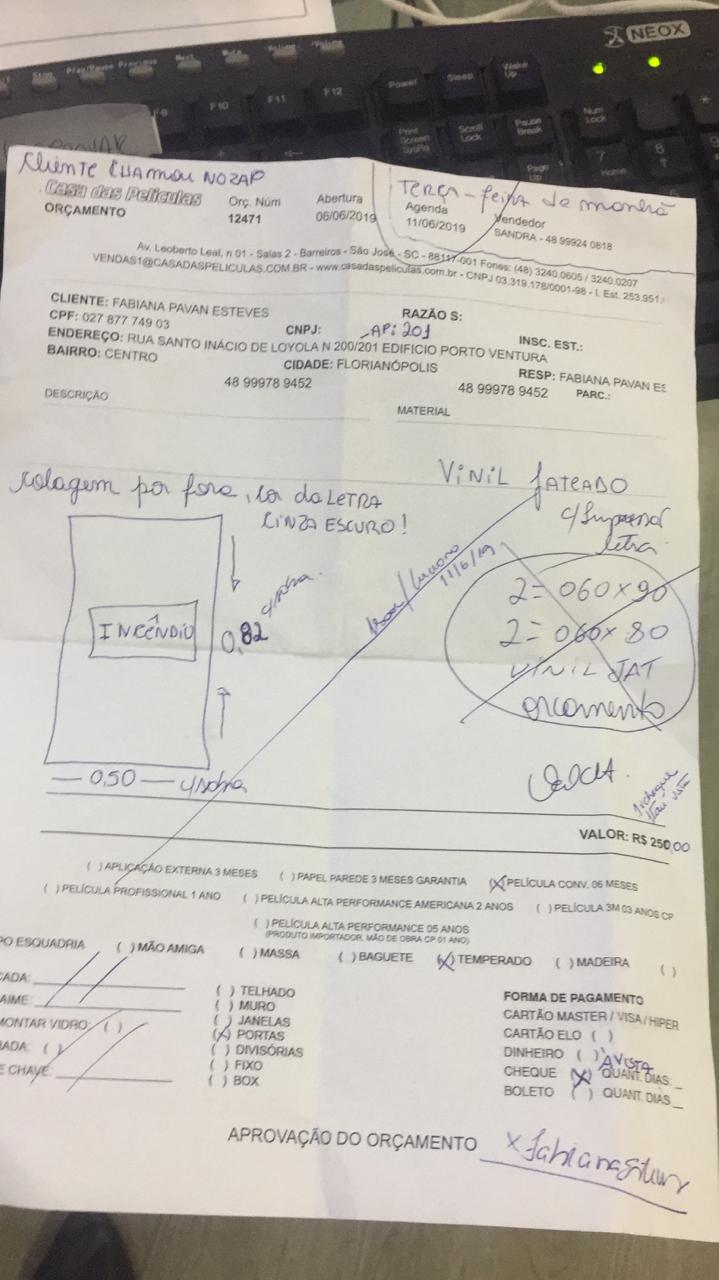 NEOX
Stop Play/Pause Previous Next Mute Volume Volume
F9 F10 F11 F12 Power Sleep Wake Up
Print Screen SysRq Scroll Lock Pause Break Num Lock
Page Up 7 Home 8
CLIENTE CHAMOU NO ZAP
TERÇA-feira de manhã
Casa das Películas Orç. Núm Abertura Agenda Vendedor
ORÇAMENTO 12471 06/06/2019 11/06/2019 SANDRA - 48 99924 0818
Av. Leoberto Leal, n 01 - Salas 2 - Barreiros - São José - SC - 88117-001 Fones: (48) 3240.0605 / 3240.0207
VENDAS1@CASADASPELICULAS.COM.BR - www.casadaspeliculas.com.br - CNPJ 03.319.178/0001-98 - I. Est. 253.951.
CLIENTE: FABIANA PAVAN ESTEVES RAZÃO S:
CPF: 027 877 749 03 CNPJ: AP: 201 INSC. EST.:
ENDEREÇO: RUA SANTO INÁCIO DE LOYOLA N 200/201 EDIFICIO PORTO VENTURA
BAIRRO: CENTRO CIDADE: FLORIANÓPOLIS RESP: FABIANA PAVAN ES
48 99978 9452 48 99978 9452 PARC.:
DESCRIÇÃO MATERIAL
colagem por fora, cor da LETRA
CINZA ESCURO!
VINIL JATEADO
c/
letra
11/6/19
INCÊNDIO
0,82 c/sobra
0,50 c/sobra
2 = 060 x 90
2 = 060 x 80
VINIL JAT
orcamento
VALOR: R$ 250,00
( ) APLICAÇÃO EXTERNA 3 MESES ( ) PAPEL PAREDE 3 MESES GARANTIA (X) PELÍCULA CONV. 06 MESES
( ) PELÍCULA PROFISSIONAL 1 ANO ( ) PELÍCULA ALTA PERFORMANCE AMERICANA 2 ANOS ( ) PELÍCULA 3M 03 ANOS CP
( ) PELÍCULA ALTA PERFORMANCE 05 ANOS
(PRODUTO IMPORTADOR, MÃO DE OBRA CP 01 ANO)
PO ESQUADRIA ( ) MÃO AMIGA ( ) MASSA ( ) BAGUETE (X) TEMPERADO ( ) MADEIRA ( )
CADA:
AIME:
MONTAR VIDRO: ( )
RADA: ( )
E CHAVE:
( ) TELHADO
( ) MURO
( ) JANELAS
(X) PORTAS
( ) DIVISÓRIAS
( ) FIXO
( ) BOX
FORMA DE PAGAMENTO
CARTÃO MASTER / VISA / HIPER
CARTÃO ELO ( )
DINHEIRO ( ) A VISTA
CHEQUE (X) QUANT. DIAS:
BOLETO ( ) QUANT. DIAS
APROVAÇÃO DO ORÇAMENTO x Fabiana